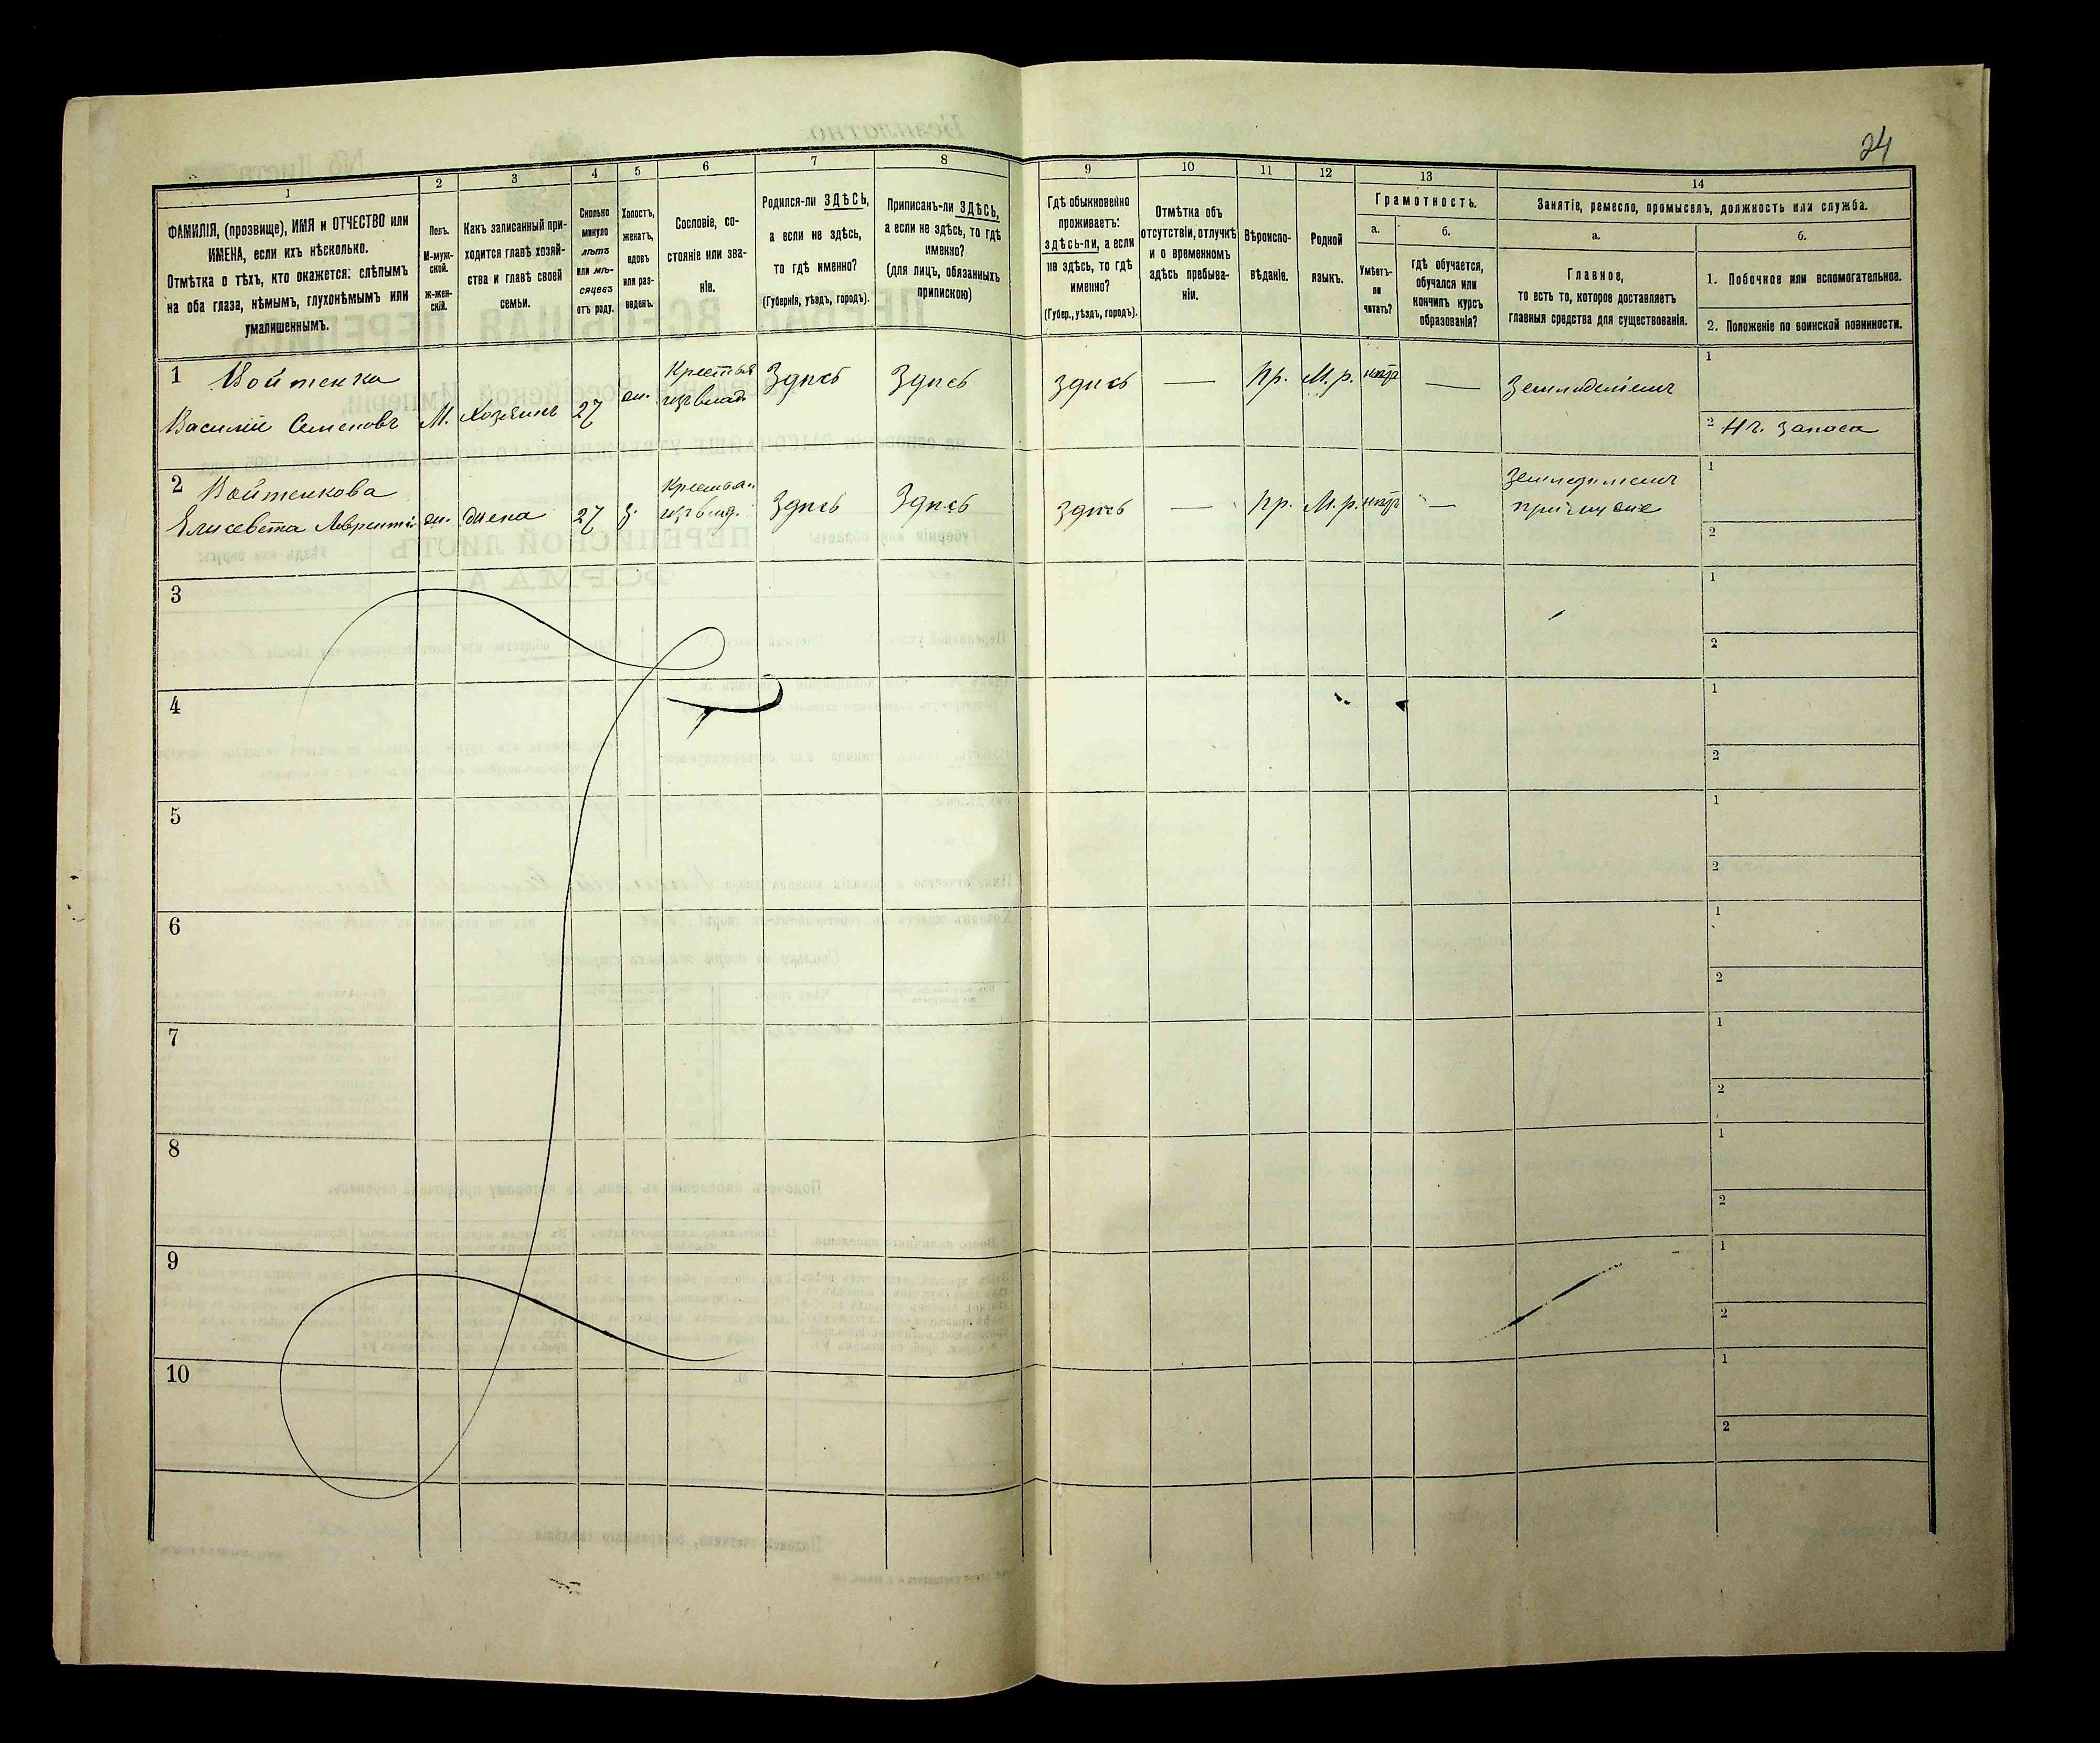 24
1
2
3
4
5
6
7
8
9
10
11
12
13
14
ФАМИЛІЯ, (прозвище), ИМЯ и ОТЧЕСТВО или
ИМЕНА, если ихъ нѣсколько.
Отмѣтка о тѣхъ, кто окажется: слѣпымъ
на оба глаза, нѣмымъ, глухонѣмымъ или
умалишеннымъ.
Полъ.
М-муж-
ской.
ж-жен-
скій.
Какъ записанный при-
ходится главѣ хозяй-
ства и главѣ своей
семьи.
Сколько
минуло
лѣтъ
или мѣ-
сяцевъ
отъ роду.
Холостъ,
женатъ,
вдовъ
или раз-
веденъ.
Сословіе, со-
стояніе или зва-
ніе.
Родился-ли ЗДѢСЬ,
а если не здѣсь,
то гдѣ именно?
(Губернія, уѣздъ, городъ).
Приписанъ-ли ЗДѢСЬ,
а если не здѣсь, то гдѣ
именно?
(для лицъ, обязанныхъ
припискою)
Гдѣ обыкновенно
проживаетъ:
здѣсь-ли, а если
не здѣсь, то гдѣ
именно?
(Губер., уѣздъ, городъ).
Отмѣтка объ
отсутствіи, отлучкѣ
и о временномъ
здѣсь пребыва-
ніи.
Вѣроиспо-
вѣданіе.
Родной
языкъ.
Грамотность.
а.
Умѣетъ-
ли
читать?
б.
гдѣ обучается,
обучался или
кончилъ курсъ
образованія?
Занятіе, ремесло, промыселъ, должность или служба.
а.
Главное,
то есть то, которое доставляетъ
главныя средства для существованія.
б.
1. Побочное или вспомогательное.
2. Положеніе по воинской повинности.
1 Войтенко
Василій Семеновъ М. Хозяинъ 27 ж. Крестья
изъ влад. Здѣсь Здѣсь здѣсь — Пр. М. р. нѣтъ — Земледѣлецъ
1
2 Нч. запаса
2 Войтенкова
Елисевета жена 27 з. Крестьян
изъ влад. Здѣсь Здѣсь здѣсь — Пр. М. р. нѣтъ — Земледѣлецъ
при мужѣ
1
2
3
1
2
4
1
2
5
1
2
6
1
2
7
1
2
8
1
2
9
1
2
10
1
2